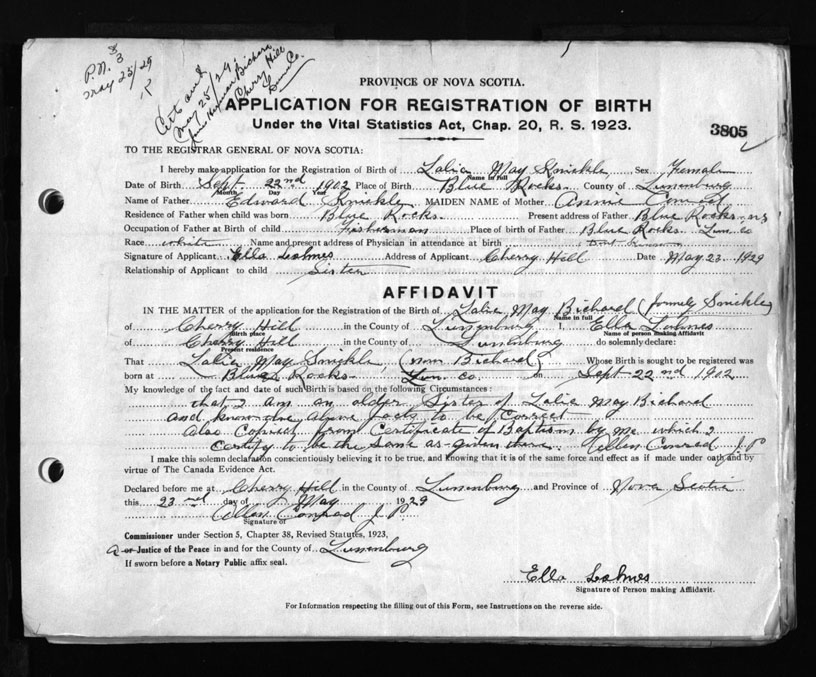 P.N. 3
May 25/29
Cert and
May 25/29
Cherry Hill
Lun Co.
PROVINCE OF NOVA SCOTIA.
APPLICATION FOR REGISTRATION OF BIRTH
Under the Vital Statistics Act, Chap. 20, R. S. 1923.
3805
TO THE REGISTRAR GENERAL OF NOVA SCOTIA:
I hereby make application for the Registration of Birth of Lalia May Knickle Sex Female
Name in full
Date of Birth Sept. 22nd 1902 Place of Birth Blue Rocks County of Lunenburg
Month Day Year
Name of Father Edward Knickle MAIDEN NAME of Mother Annie Conrad
Residence of Father when child was born Blue Rocks Present address of Father Blue Rocks N.S
Occupation of Father at Birth of child Fisherman Place of birth of Father Blue Rocks Lun. Co
Race white Name and present address of Physician in attendance at birth
Signature of Applicant Ella Lohnes Address of Applicant Cherry Hill Date May 23 1929
Relationship of Applicant to child Sister
AFFIDAVIT
IN THE MATTER of the application for the Registration of the Birth of Lalia May Bichard (formely Knickle)
Name in full
of Cherry Hill in the County of Lunenburg I, Ella Lohnes
Birth place Name of Person making Affidavit
of Cherry Hill in the County of Lunenburg do solemnly declare:
Present residence
That Lalia May Knickle, (now Bichard) Whose Birth is sought to be registered was
born at Blue Rocks Lun Co on Sept 22nd 1902
My knowledge of the fact and date of such Birth is based on the following Circumstances:
that I am an older Sister of Lalia May Bichard
and know the above facts to be Correct
Also Copied from Certificate of Baptism by me which I
Certify to be the Same as given there. Allen Conrad J.P
I make this solemn declaration conscientiously believing it to be true, and knowing that it is of the same force and effect as if made under oath and by
virtue of The Canada Evidence Act.
Declared before me at Cherry Hill in the County of Lunenburg and Province of Nova Scotia
this 23rd day of May 1929
Allen Conrad J.P
Signature of
Commissioner under Section 5, Chapter 38, Revised Statutes, 1923,
a or Justice of the Peace in and for the County of Lunenburg
If sworn before a Notary Public affix seal.
Ella Lohnes
Signature of Person making Affidavit.
For Information respecting the filling out of this Form, see Instructions on the reverse side.